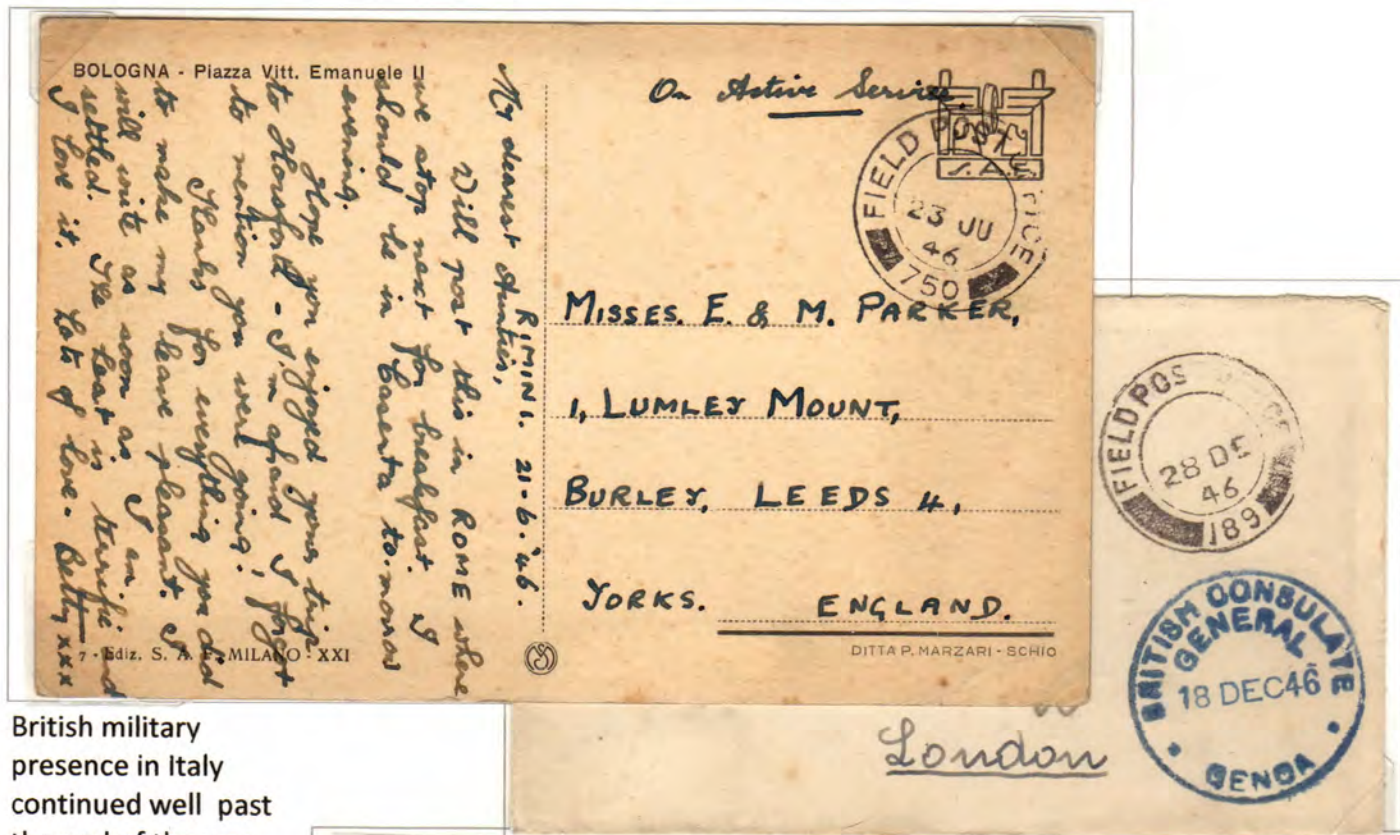 BOLOGNA - Piazza Vitt. Emanuele II
RIMINI. 21-6.'46.
My dearest Aunties,
Will post this in ROME where
we stop next for breakfast. I
should be in Caserta to-morrow
evening.
Hope you enjoyed your trip
to Horsforth - I'm afraid I forgot
to mention you were going!
Thanks for everything you did
to make my leave pleasant. I
will write as soon as I am
settled. The heat is terrific and
I love it. Lots of love. Betty xxx
7 - Ediz. S. A. F. MILANO - XXI
On Active Service.
S.A.F.
FIELD POST OFFICE
23 JU
46
750
MISSES. E. & M. PARKER,
1, LUMLEY MOUNT,
BURLEY, LEEDS 4,
YORKS. ENGLAND.
DITTA P. MARZARI - SCHIO
FIELD POS
28 DE
46
189
BRITISH CONSULATE
GENERAL
18 DEC 46
GENOA
London
British military
presence in Italy
continued well past